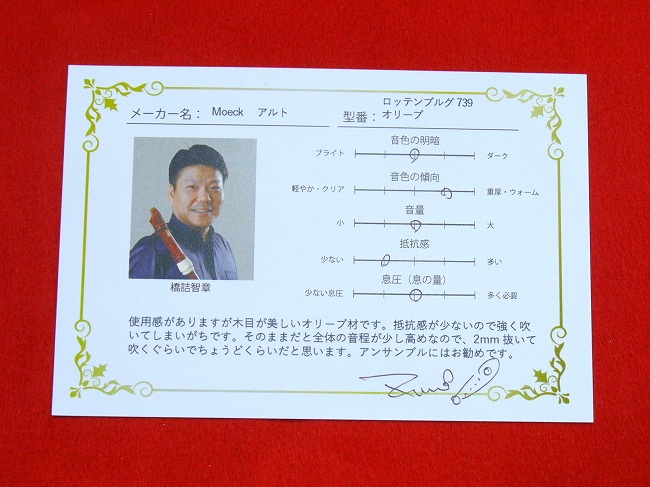 メーカー名： Moeck アルト
型番： ロッテンブルグ 739
オリーブ
音色の明暗
ブライト ダーク
音色の傾向
軽やか・クリア 重厚・ウォーム
音量
小 大
抵抗感
少ない 多い
息圧（息の量）
少ない息圧 多く必要
橋詰智章
使用感がありますが木目が美しいオリーブ材です。抵抗感が少ないので強く吹
いてしまいがちです。そのままだと全体の音程が少し高めなので、2mm 抜いて
吹くぐらいでちょうどくらいだと思います。アンサンブルにはお勧めです。